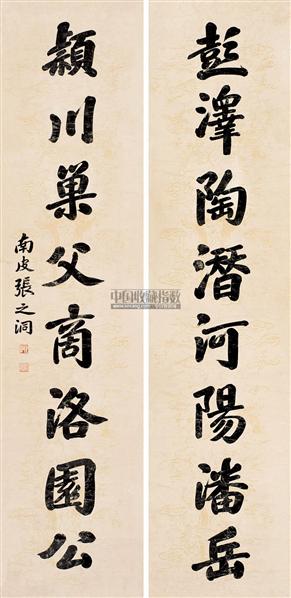 彭澤陶潛河陽潘岳
潁川巢父商洛園公
南皮張之洞
中国收藏指数